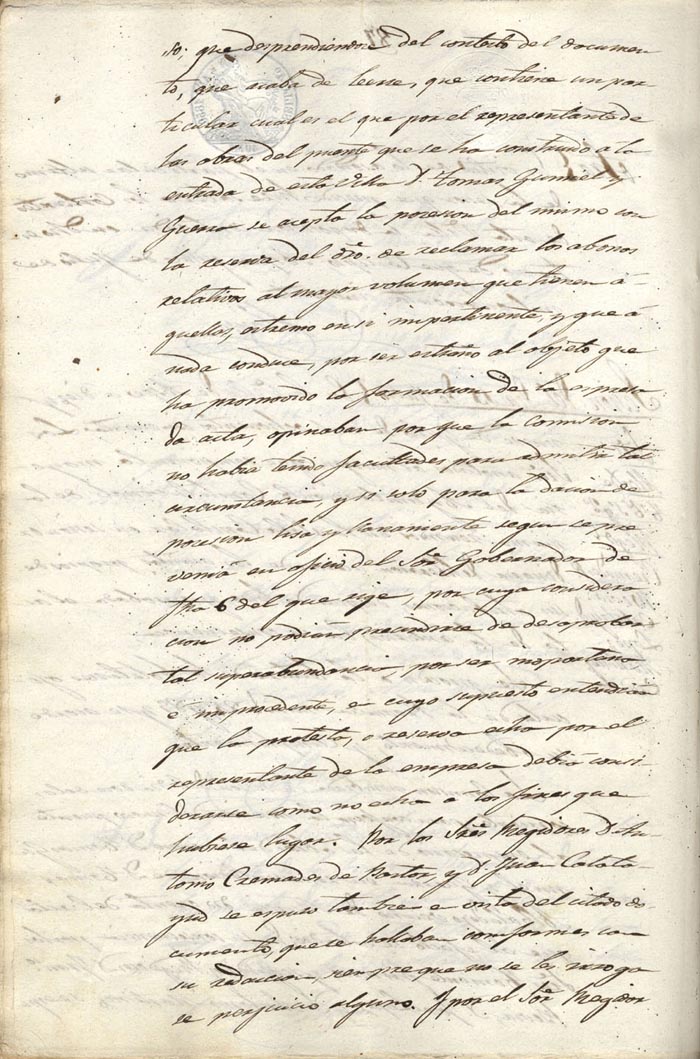 so; que desprendiendose del contesto del documen
to, que acaba de leerse, que contiene un par
ticular cual es el que por el representante de
las obras del puente que se ha construido a la
entrada de esta Villa D. Tomas Gumiel y
Guerra se acepta la posesion del mismo con
la reserva del dro. de reclamar los abonos
relativos al mayor volumen que tienen a-
quellas, estremo en si impertinente, y que á
nada conduce, por ser estraño al objeto que
ha promovido la formacion de la espresa
da acta, opinaban por que la comision
no habia tenido facultades para admitir tal
circunstancia, y si solo para la dacion de
posesion lisa y llanamente segun se pre
venia en oficio del Sor. Gobernador de
fha 6 del que rige, por cuya considera
cion no podian precindirse de desaprobar
tal superabundancia, por ser inoportuna
é improcedente, en cuyo supuesto entendian
que la protesta, o reserva echa por el
representante de la empresa debia consi
derarse como no echa a los fines que
hubiese lugar. Por los Sres. Regidores D. An
tonio Cremades de Pastor, y D. Juan Calata
yud se espuso tambien en vista del citado do-
cumento, que se hallaban conformes con
su redaccion, siempre que no se les irroga
se perjuicio alguno. Y por el Sor. Regidor